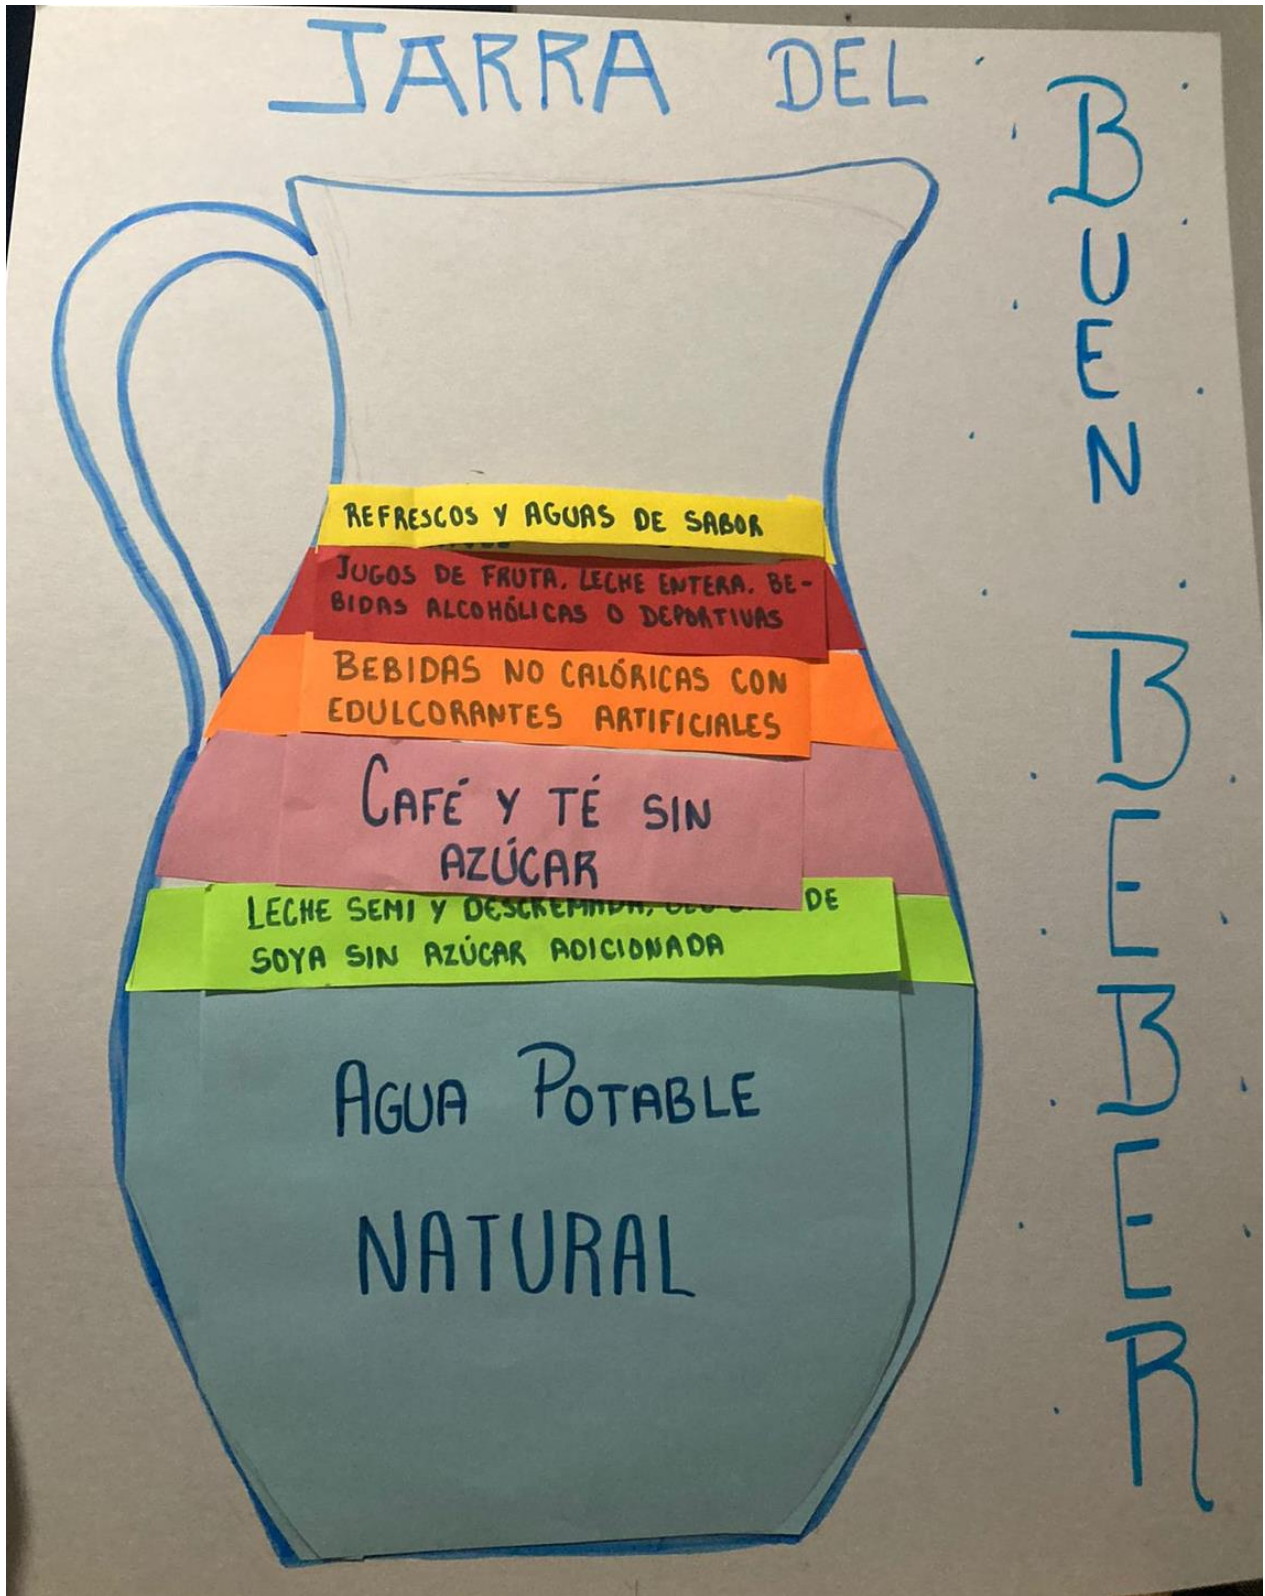 JARRA DEL
BUEN
BEBER
REFRESCOS Y AGUAS DE SABOR
JUGOS DE FRUTA. LECHE ENTERA. BE-
BIDAS ALCOHÓLICAS O DEPORTIVAS
BEBIDAS NO CALÓRICAS CON
EDULCORANTES ARTIFICIALES
CAFÉ Y TÉ SIN
AZÚCAR
LECHE SEMI Y DESCREMADA, DE
SOYA SIN AZÚCAR ADICIONADA
AGUA POTABLE
NATURAL